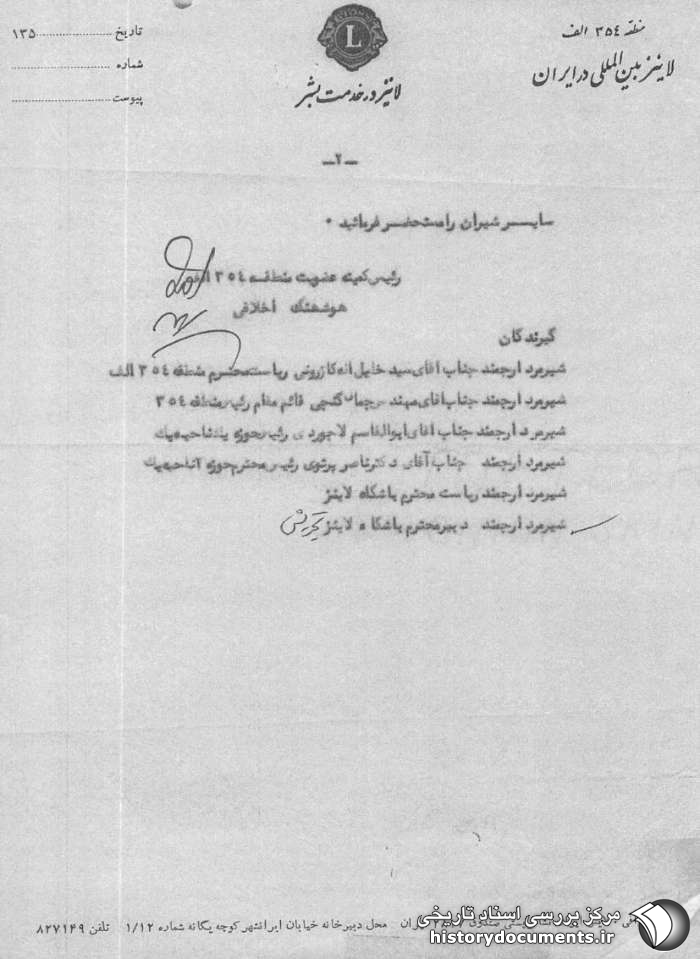 منطقه ۳۵۴ الف
لاینز بین المللی در ایران
L
لاینز در خدمت بشر
تاریخ ۱۳۵
شماره
پیوست
ـ۲ـ
سایر شیران را مستحضر فرمائید .
رئیس کمیته عضویت منطقه ۳۵۴ الف
هوشنگ اخلاقی
گیرندگان
شیرمرد ارجمند جناب آقای سید خلیل اله کازرونی ریاست محترم منطقه ۳۵۴ الف
شیرمرد ارجمند جناب آقای مهند گنجی قائم مقام رئیس منطقه ۳۵۴
شیرمرد ارجمند جناب آقای ابوالقاسم لاجوردی رئیس حوزه یک ناحیه یک
شیرمرد ارجمند جناب آقای دکتر ناصر پرتوی رئیس محترم حوزه ناحیه یک
شیرمرد ارجمند ریاست محترم باشگاه لاینز
شیرمرد ارجمند دبیر محترم باشگاه لاینز تجریش
تهران محل دبیرخانه خیابان ایرانشهر کوچه یگانه شماره ۱/۱۲ تلفن ۸۲۷۱۴۹
مرکز بررسی اسناد تاریخی
historydocuments.ir